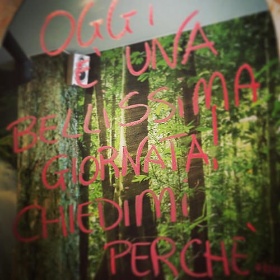 OGGI
È UNA
BELLISSIMA
GIORNATA!
CHIEDIMI
PERCHÈ...